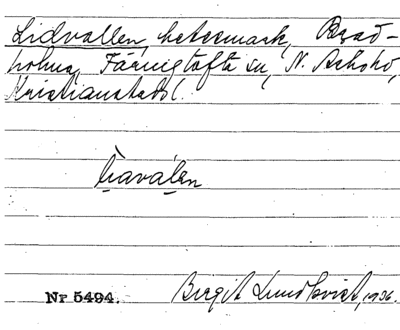 Lidvallen, betesmark, Brad-
holma, Färingtofta sn, N. Åsbo hd,
Kristianstads l.
liavàlen
Nr 5494.
Birgit Lundkvist, 1936.